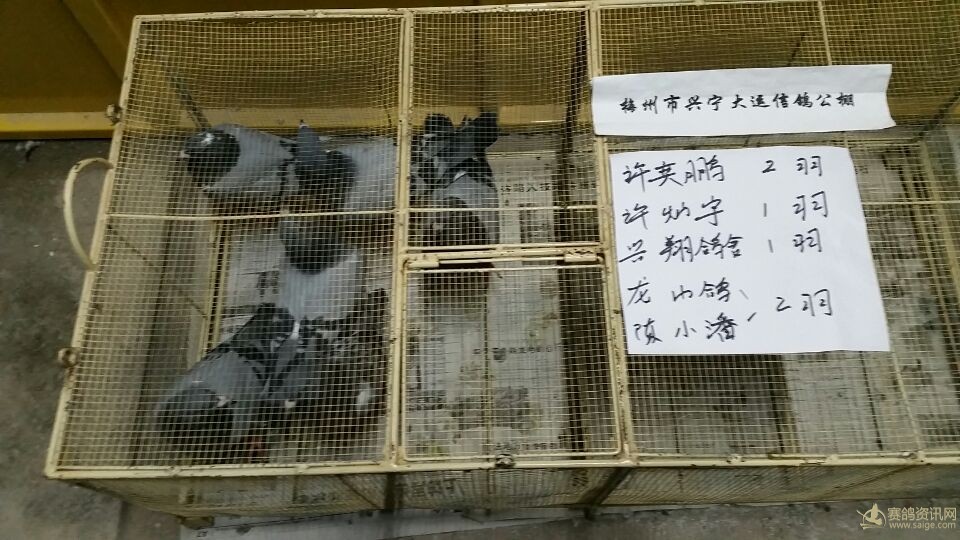 梅州市兴宁大运信鸽公棚
许英鹏 2羽
许灿宇 1羽
兴翔鸽舍 1羽
龙山鸽、
陈小潘 2羽
赛鸽资讯网
www.saige.com